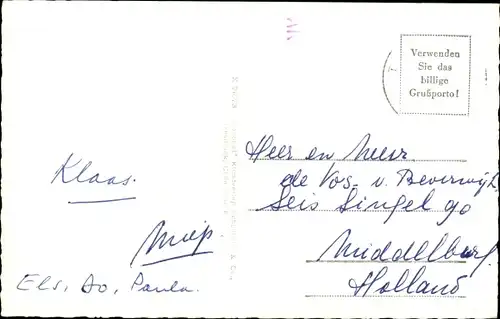 Verwenden
Sie das
billige
Grußporto!
Heer en Mevr.
de Vos - v. Beverwijk
Seis Singel 90
Middelburg
Holland
Klaas.
Miep.
Els, Ao, Paula.